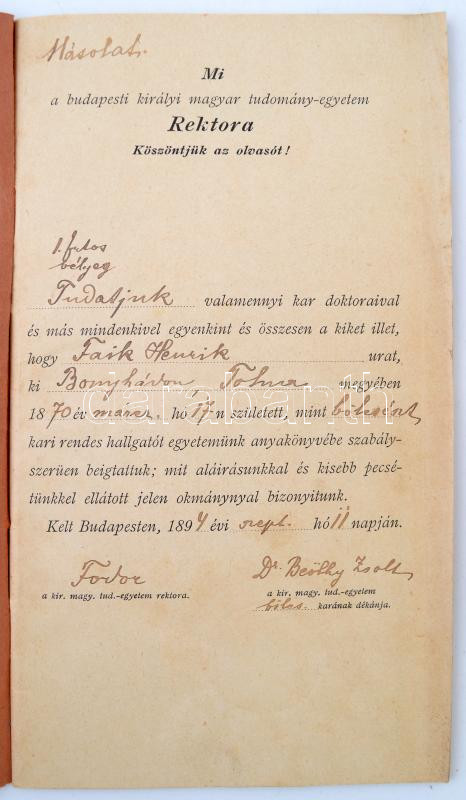 Másolat.
Mi
a budapesti királyi magyar tudomány-egyetem
Rektora
Köszöntjük az olvasót!
1. frtos
bélyeg
Tudatjuk valamennyi kar doktoraival
és más mindenkivel egyenkint és összesen a kiket illet,
hogy Faik Henrik urat,
ki Bonyhádon, Tolna megyében
1870 év márcz. hó 17-n született, mint bölcsészet
kari rendes hallgatót egyetemünk anyakönyvébe szabály-
szerüen beigtattuk; mit aláirásunkkal és kisebb pecsé-
tünkkel ellátott jelen okmánynyal bizonyitunk.
Kelt Budapesten, 1894 évi szept. hó 11 napján.
Fodor
a kir. magy. tud.-egyetem rektora.
Dr. Beöthy Zsolt
a kir. magy. tud.-egyetem
bölcs. karának dékánja.
darabanth